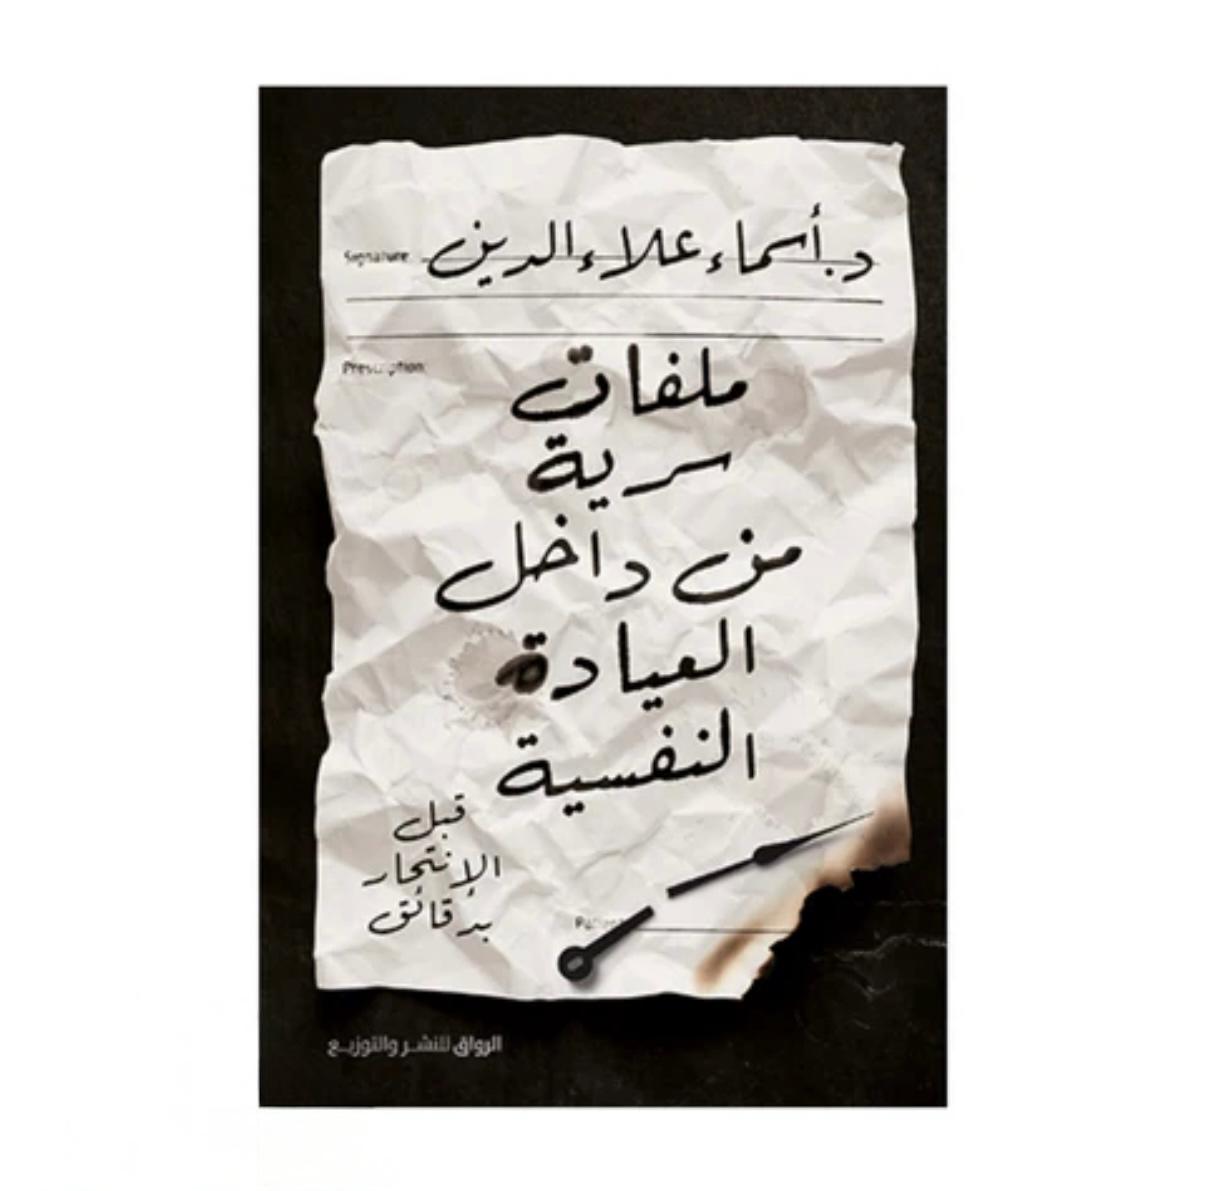 د. أسماء علاء الدين
Signature:
Prescription:
ملفات
سرية
من داخل
العيادة
النفسية
قبل
الإنتحار
بدقائق
الرواق للنشر والتوزيع